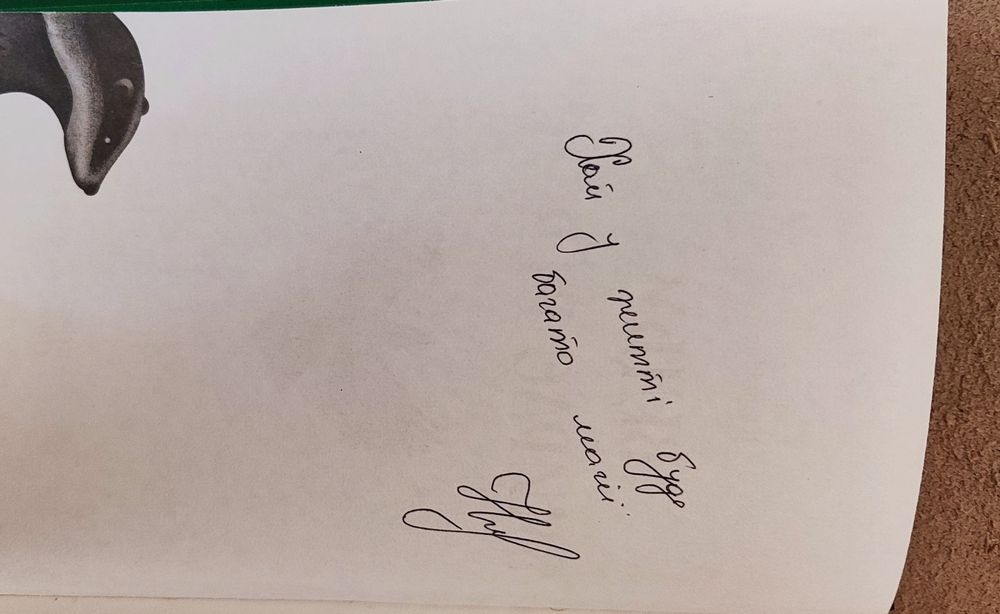 Хай у житті буде
багато магії